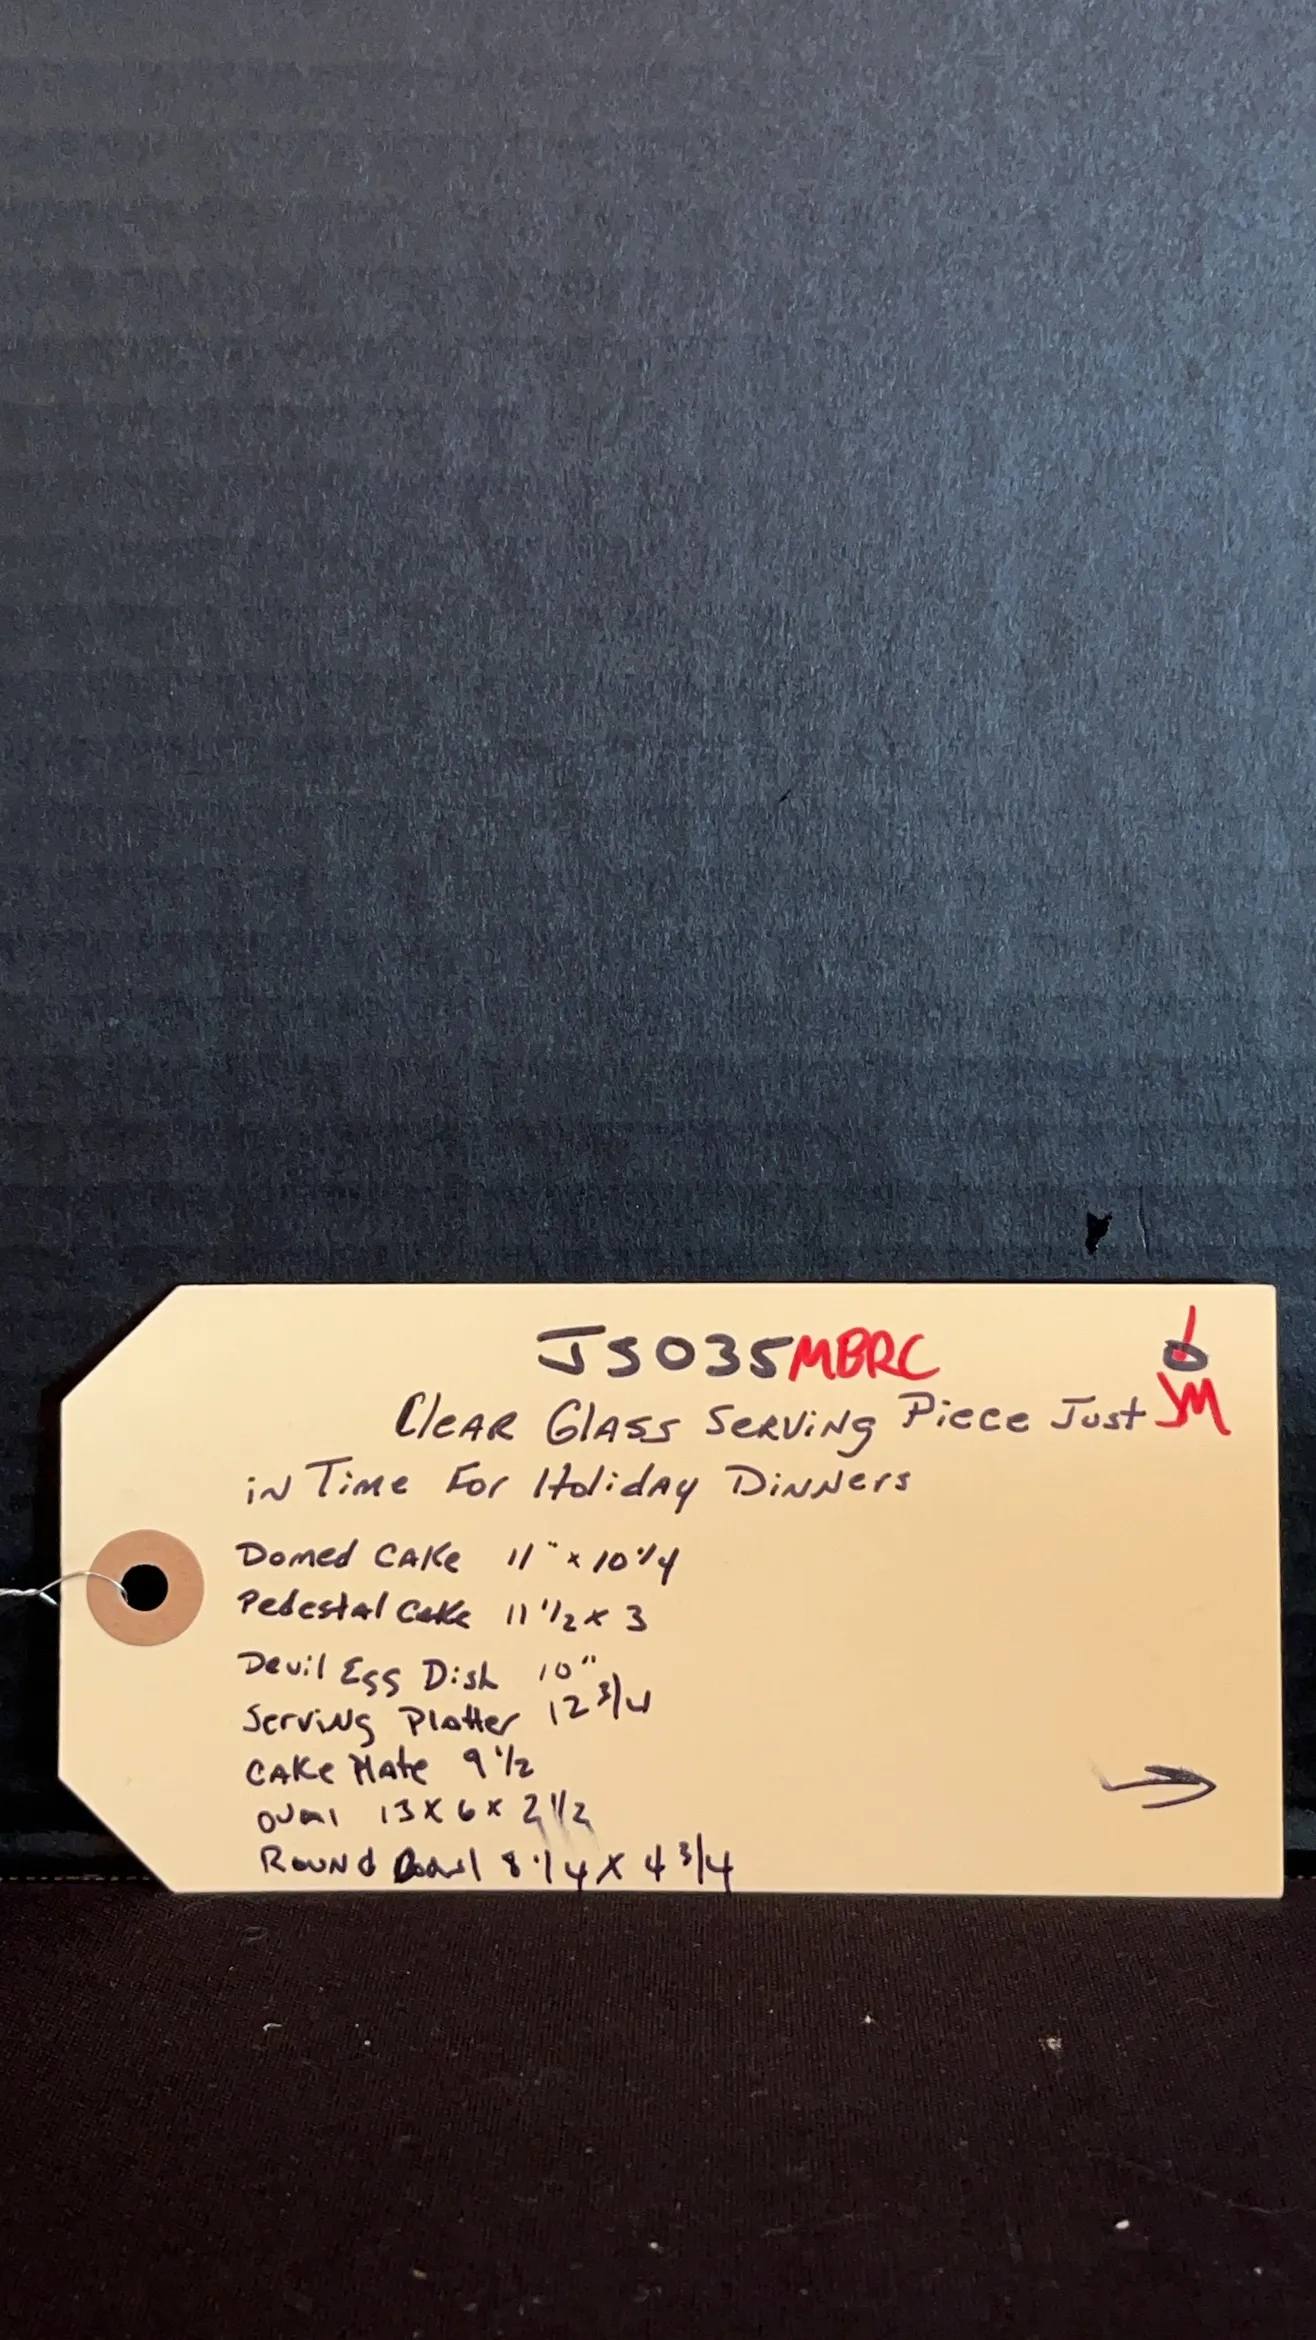 JS035MBRC
Clear Glass Serving Piece Just JM
in Time For Holiday Dinners
Domed Cake 11" x 10 1/4
Pedestal Cake 11 1/2 x 3
Devil Egg Dish 10"
Serving Platter 12 3/4
Cake Plate 9 1/2
Oval 13 x 6 x 2 1/2
Round Bowl 8 1/4 x 4 3/4